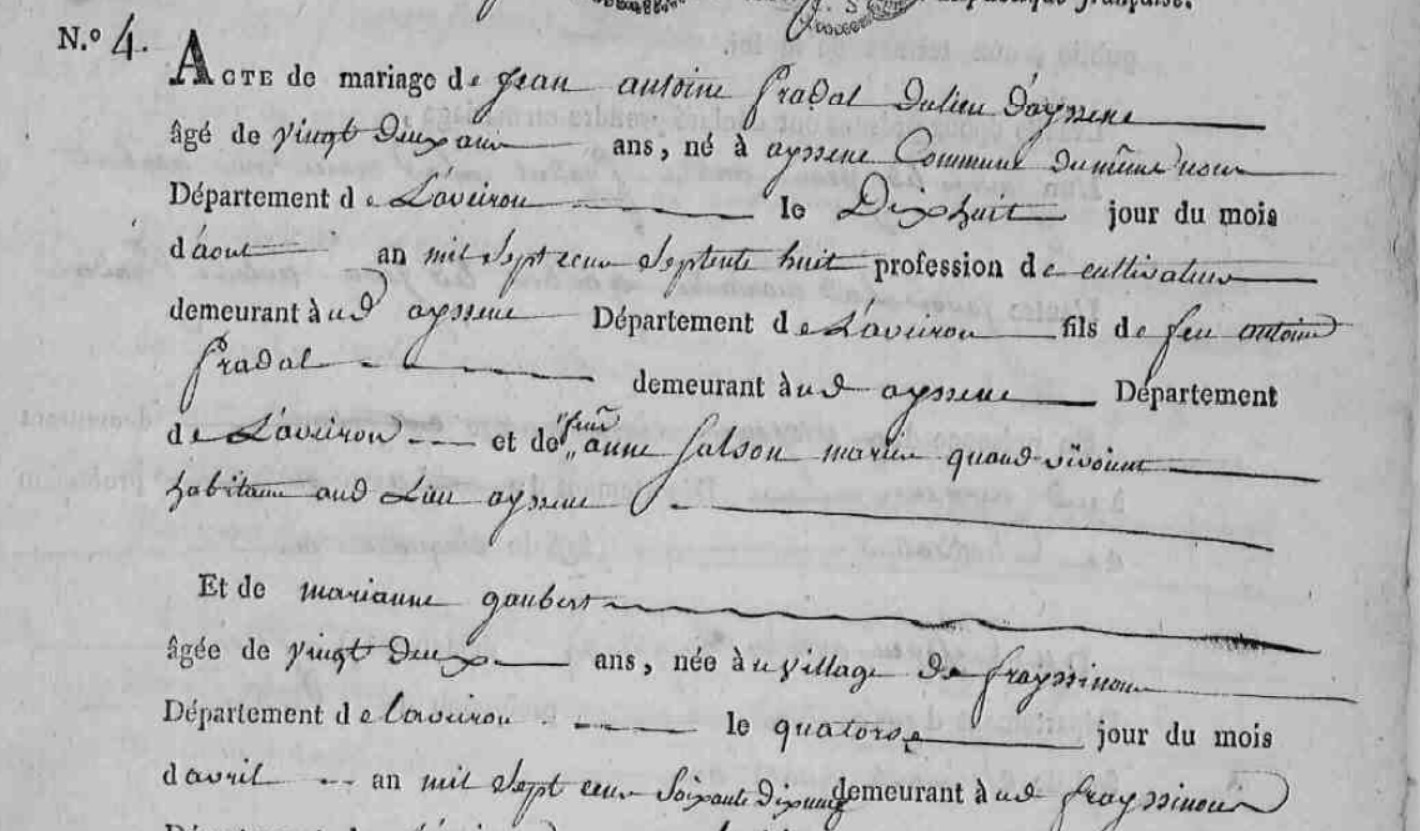 République française.
N.º 4. ACTE de mariage de jean antoine fradal dulieu d'ayssene
âgé de vingt deux ans ans, né à ayssene Commune du même nom
Département de L'aveiron le Dixhuit jour du mois
d'aout an mil sept cens septente huit profession de cultivateur
demeurant à ud ayssene Département de L'aveiron fils de feu antoine
fradal demeurant à ud ayssene Département
de L'aveiron et de feue anne salson mariés quand vivoint
habitans aud Lieu ayssene
Et de marianne gaubert
âgée de vingt deux ans, née à u village de frayssinous
Département de laveiron le quatorse jour du mois
d'avril an mil sept cens soixante dixneuf demeurant à ud frayssinous
Département